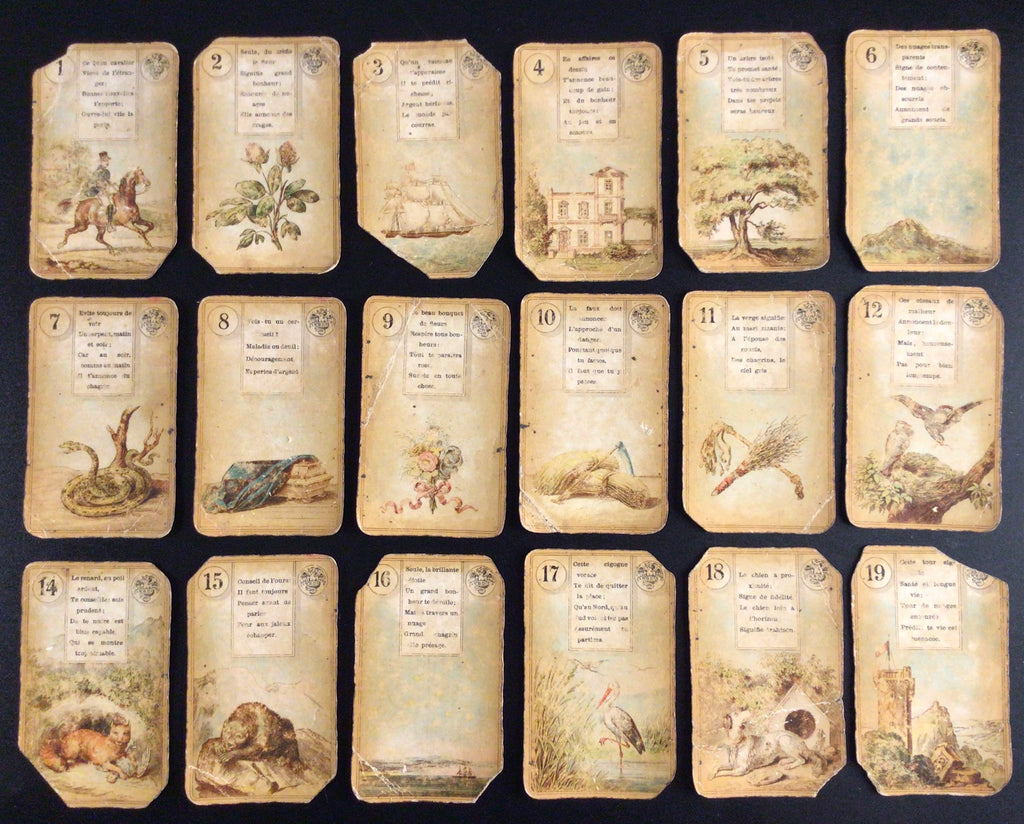 1
Ce beau cavalier
Vient de l'étran-
ger;
Bonnes nouvelles
t'apporte;
Ouvre-lui vite la
porte.
2
Seule, du trèfle
la fleur
Signifie grand
bonheur;
Entourée de nu-
ages
Elle annonce des
orages.
3
Qu'un
t'apparaisse
Il te prédit ri-
chesse;
Argent
Le monde
courras.
4
En affaires ce
dessin
T'annonce beau-
coup de gain;
Et du bonheur
toujours:
Au jeu et en
amours.
5
Un arbre isolé
Te promet santé:
Vois-tu des arbres
très nombreux
Dans tes projets
seras heureux.
6
Des nuages trans-
parents
Signe de conten-
tement;
Des nuages ob-
scurcis
Annoncent de
grands soucis.
7
Evite toujours de
voir
Un serpent, matin
et soir;
Car au soir,
comme au matin
Il t'annonce du
chagrin
8
Vois-tu un cer-
cueil?
Maladie ou deuil;
Découragement,
Et pertes d'argent
9
beau bouquet
de fleurs
Respire tous bon-
heurs:
Tout te paraîtra
rose,
en toute
chose.
10
La faux doit
annoncer
L'approche d'un
danger.
Pourtant quoi que
tu fasses,
Il faut que tu y
passes.
11
La verge signifie:
Au mari
A l'épouse des
soucis,
Des chagrins, le
ciel gris
12
Ces oiseaux de
malheur
Annoncent la dou-
leur;
Mais, heureuse-
ment
Pas pour bien
longtemps.
14
Le renard, au poil
ardent,
Te conseille: sois
prudent;
De te nuire est
bien capable,
Qui se montre
trop aimable.
15
Conseil de l'ours:
Il faut toujours
Penser avant de
parler
Pour aux jaloux
échapper.
16
Seule, la brillante
étoile
Un grand bon-
heur te dévoile;
Mais à travers un
nuage
Grand chagrin
elle présage.
17
Cette cigogne
vorace
Te dit de quitter
la place;
Qu'au Nord, qu'au
Sud vol
Assurément tu
partiras
18
Le chien à pro-
ximité;
Signe de fidélité,
Le chien loin à
l'horizon
Signifie trahison.
19
Cette tour
Santé et longue
vie;
Tour de nuages
entourée
Prédit: ta vie est
menacée.